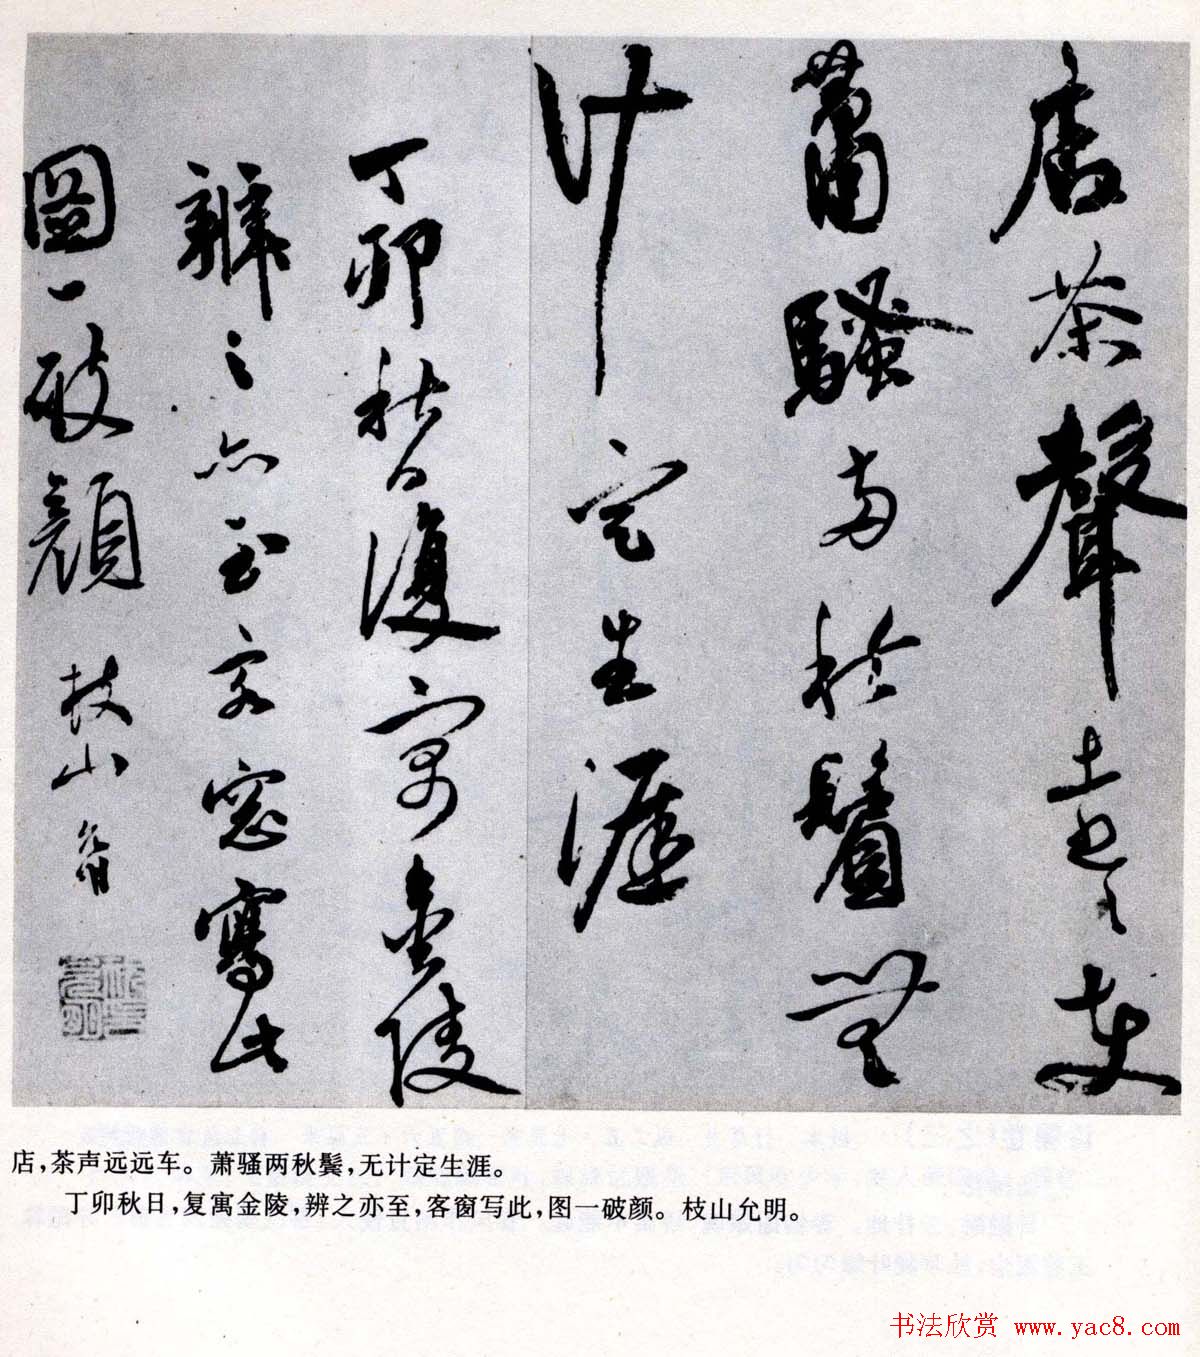 店茶聲遠〻車
蕭騷兩秋鬢無
计定生涯
丁卯秋日復寓金陵
辨之亦至客窓寫此
圖一破顔 枝山允明
店,茶声远远车。萧骚两秋鬓,无计定生涯。
丁卯秋日,复寓金陵,辨之亦至,客窗写此,图一破颜。枝山允明。
书法欣赏 www.yac8.com